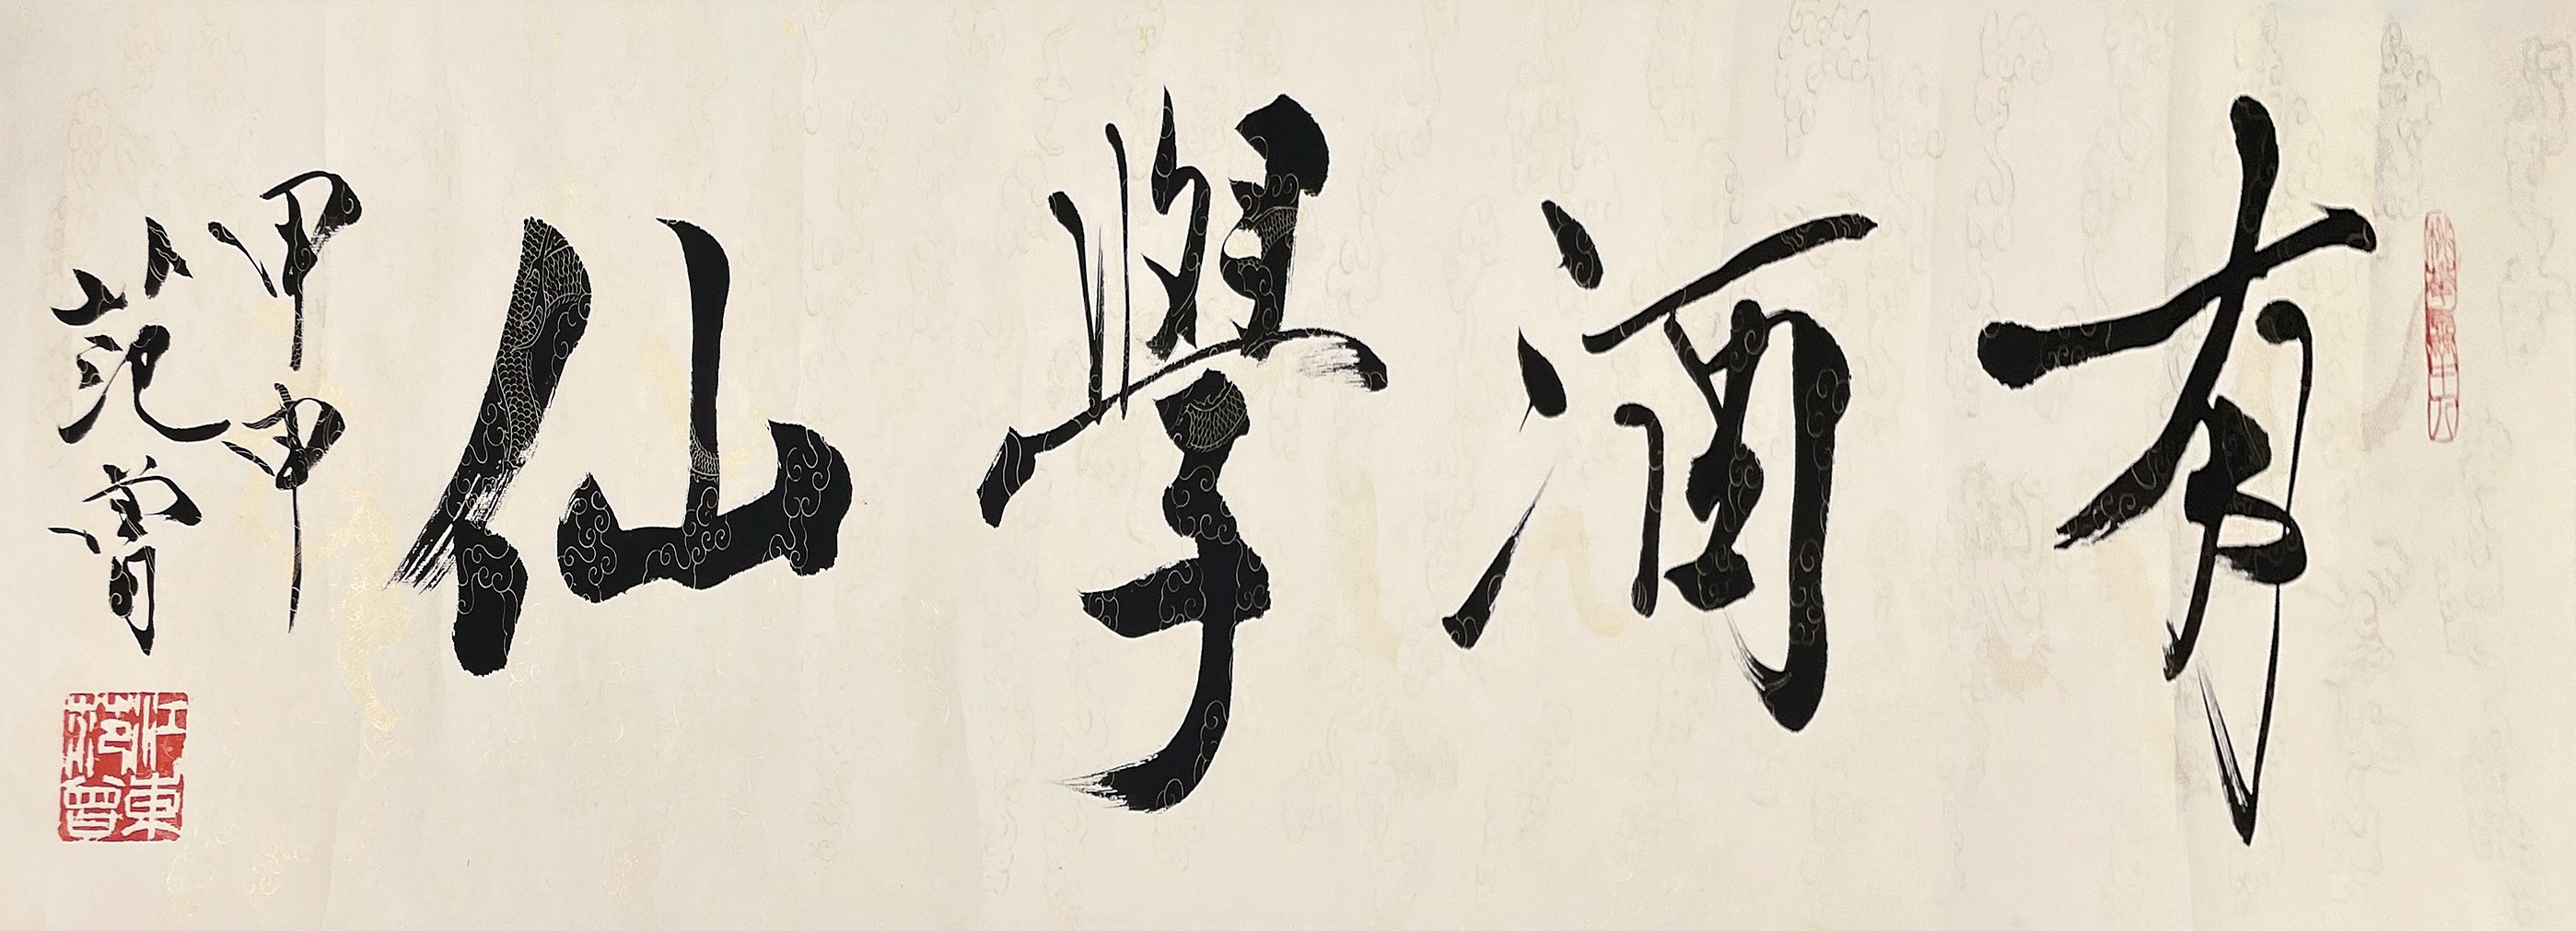 有酒學仙
甲申
范曾
江東
范曾